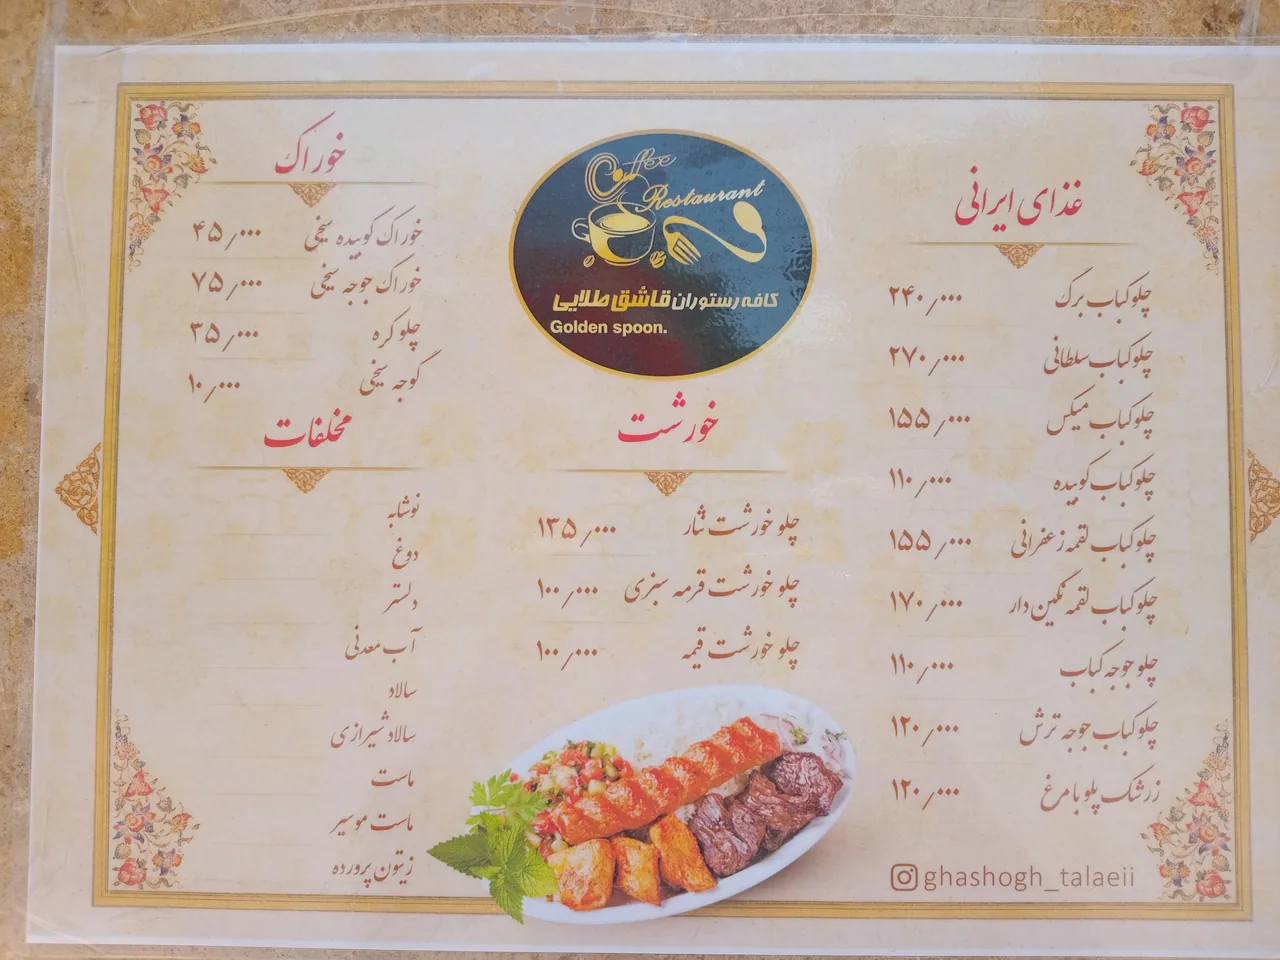 Coffee
Restaurant
کافه رستوران قاشق طلایی
Golden spoon.
غذای ایرانی
چلوکباب برگ ۲۴۰٫۰۰۰
چلوکباب سلطانی ۲۷۰٫۰۰۰
چلوکباب میکس ۱۵۵٫۰۰۰
چلوکباب کوبیده ۱۱۰٫۰۰۰
چلوکباب لقمه زعفرانی ۱۵۵٫۰۰۰
چلوکباب لقمه نگین دار ۱۷۰٫۰۰۰
چلو جوجه کباب ۱۱۰٫۰۰۰
چلوکباب جوجه ترش ۱۲۰٫۰۰۰
زرشک پلو با مرغ ۱۲۰٫۰۰۰
ghashogh_talaeii
خورشت
چلو خورشت نثار ۱۳۵٫۰۰۰
چلو خورشت قرمه سبزی ۱۰۰٫۰۰۰
چلو خورشت قیمه ۱۰۰٫۰۰۰
خوراک
خوراک کوبیده سیخی ۴۵٫۰۰۰
خوراک جوجه سیخی ۷۵٫۰۰۰
چلو کره ۳۵٫۰۰۰
گوجه سیخی ۱۰٫۰۰۰
مخلفات
نوشابه
دوغ
دلستر
آب معدنی
سالاد
سالاد شیرازی
ماست
ماست موسیر
زیتون پرورده